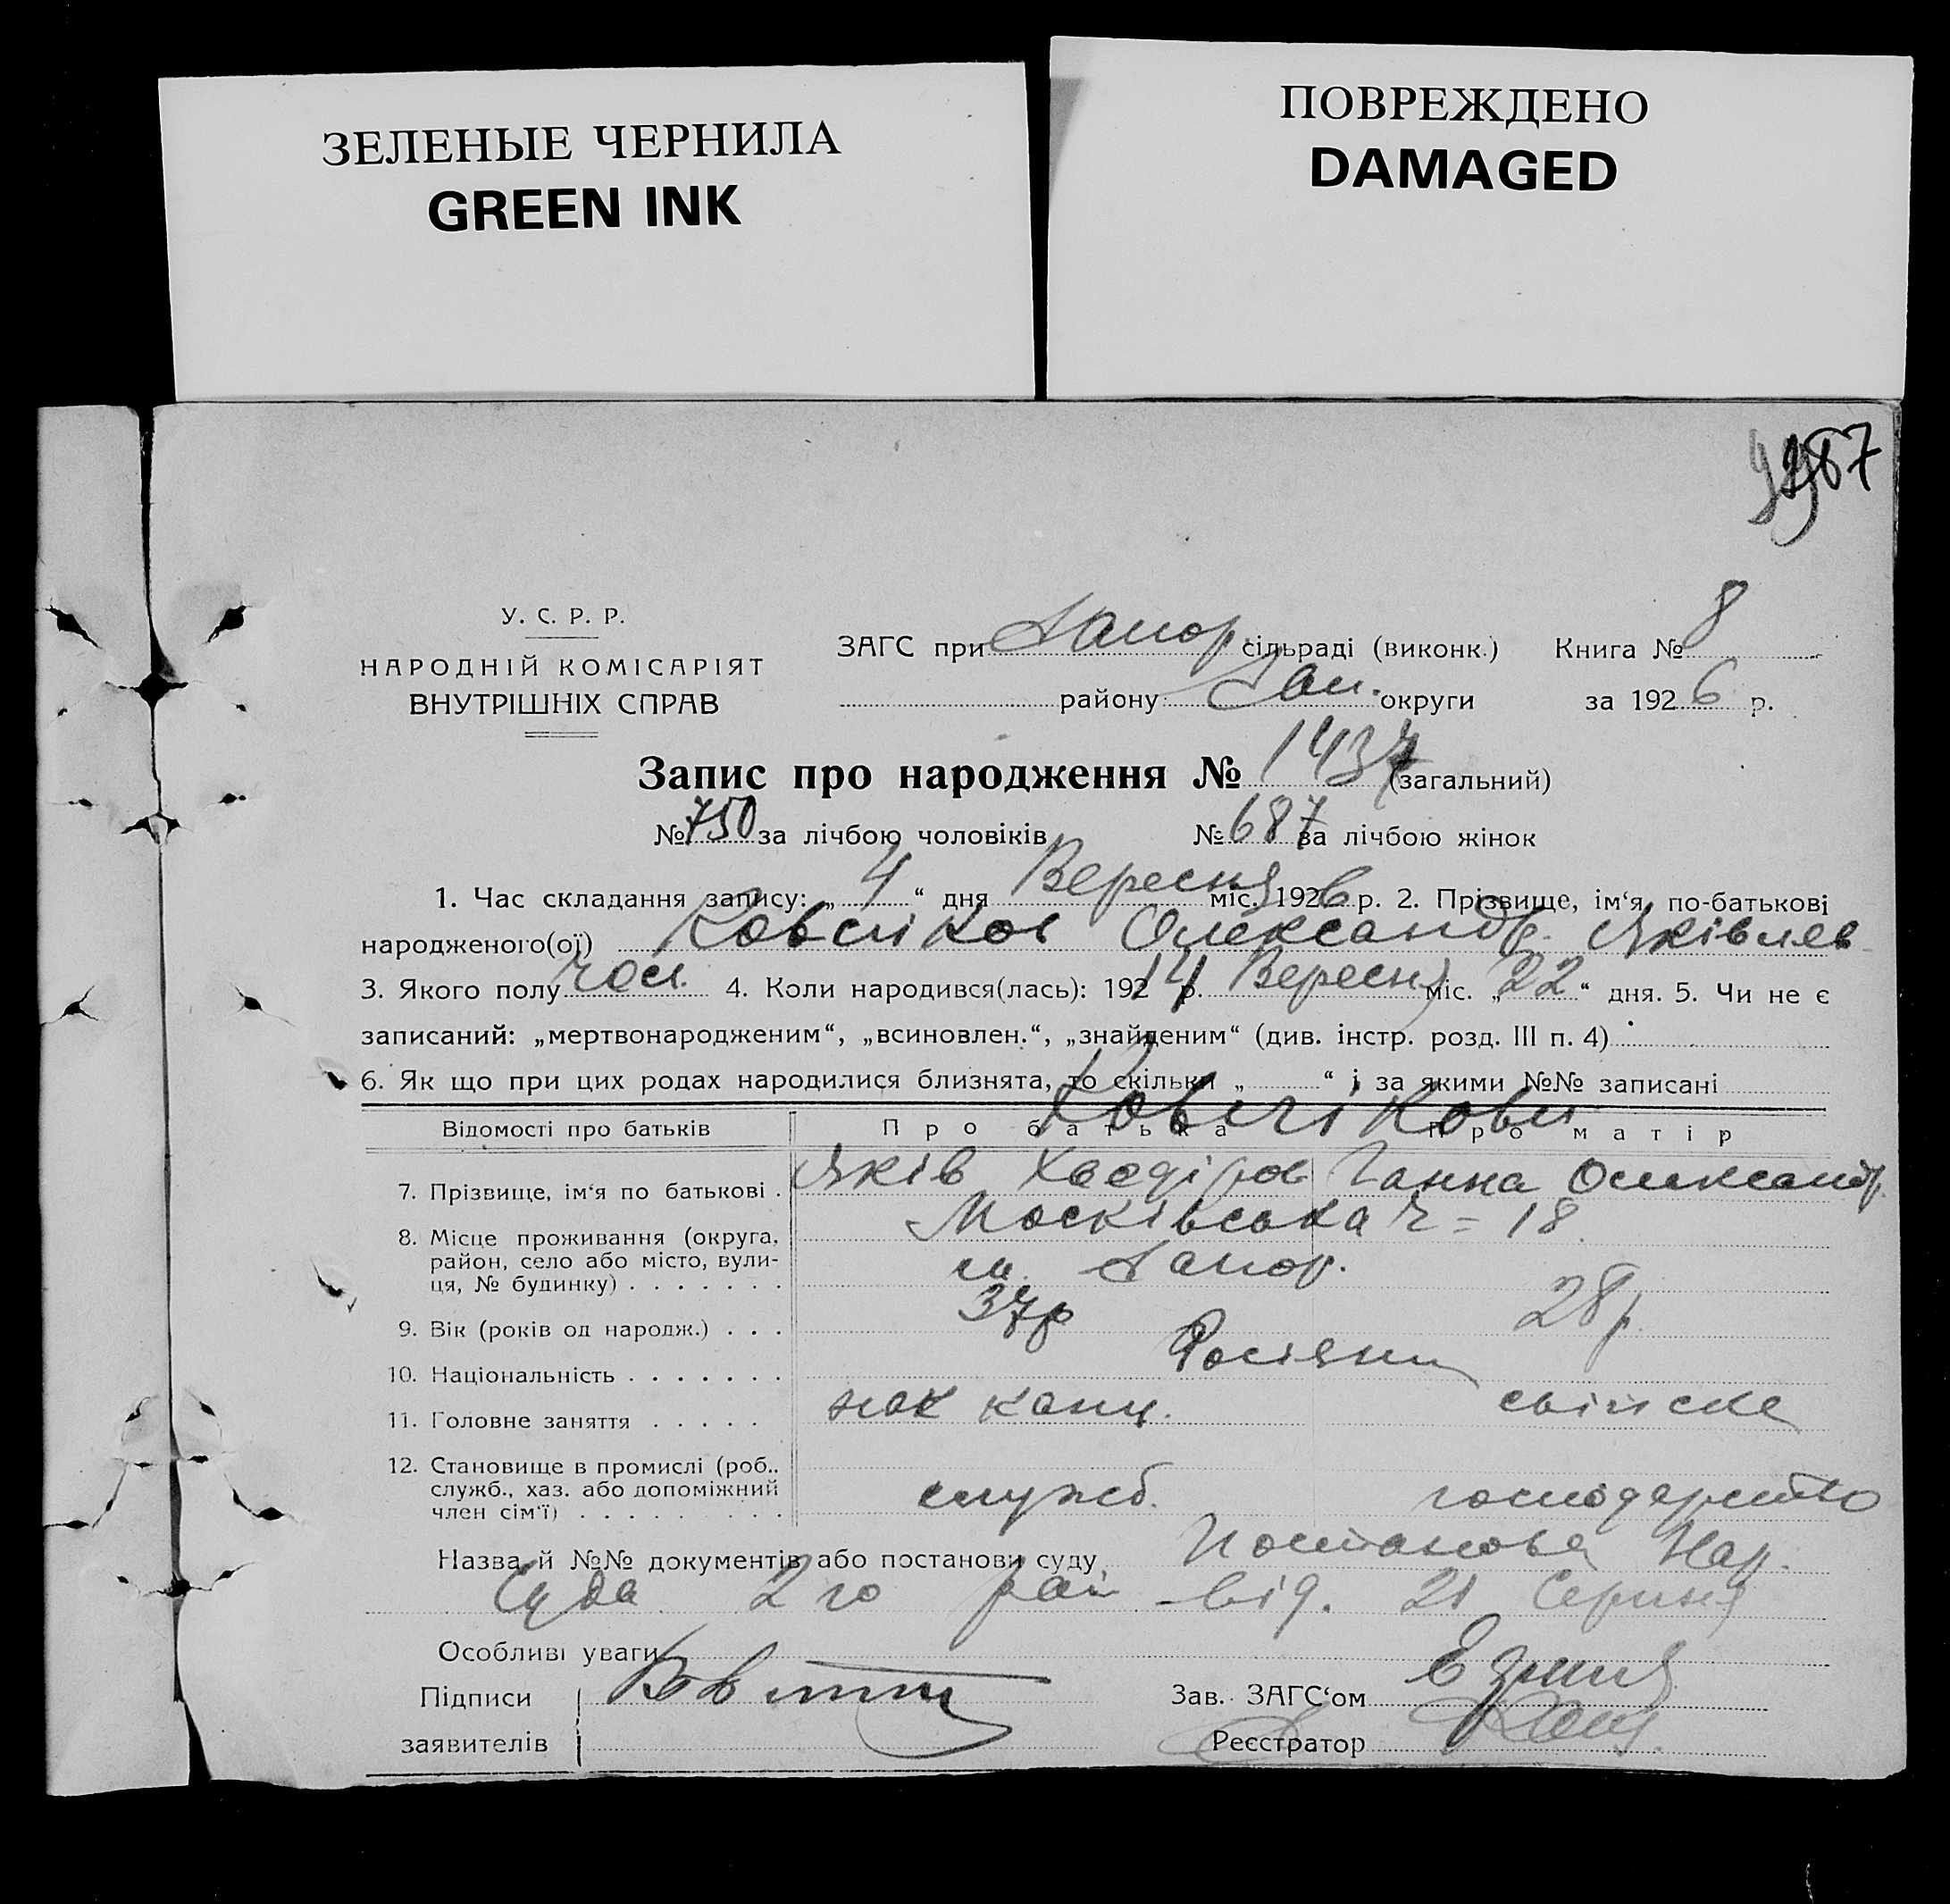 ЗЕЛЕНЫЕ ЧЕРНИЛА
GREEN INK
ПОВРЕЖДЕНО
DAMAGED
У. С. Р. Р.
НАРОДНІЙ КОМІСАРІЯТ
ВНУТРІШНІХ СПРАВ
ЗАГС при Запор. сільраді (виконк.) Книга № 8
району Зап. округи за 1926 р.
Запис про народження № 1437 (загальний)
№ 750 за лічбою чоловіків № 687 за лічбою жінок
1. Час складання запису: „ 4 “ дня Вересня міс. 1926 р. 2. Прізвище, ім‘я, по-батькові
народженого(ої) Олександр Яківлев
3. Якого полу чол. 4. Коли народився(лась): 19214 р. Вересня міс. „ 22 “ дня. 5. Чи не є
записаний: „мертвонародженим“, „всиновлен.“, „знайденим“ (див. інстр. розд. III п. 4)
6. Як що при цих родах народилися близнята, то скільки „ “ і за якими №№ записані
Відомості про батьків Про батька Про матір
7. Прізвище, ім‘я по батькові . Яків Ганна Олександр.
8. Місце проживання (округа, район, село або місто, вулиця, № будинку) . . . . . . . Московська ч = 18
м. Запор.
9. Вік (років од народж.) . . . 37р 28р.
10. Національність . . . . . . . Росіяни
11. Головне заняття . . . . . канц. свійске
12. Становище в промислі (роб., служб., хаз. або допоміжний член сім‘ї) . . . . . . . . служб. господарство
Назва й №№ документів або постанови суду Постанова Нар.
Суда 2го рай від. 21 Серпня
Особливі уваги
Підписи
заявителів
Зав. ЗАГС‘ом
Реєстратор